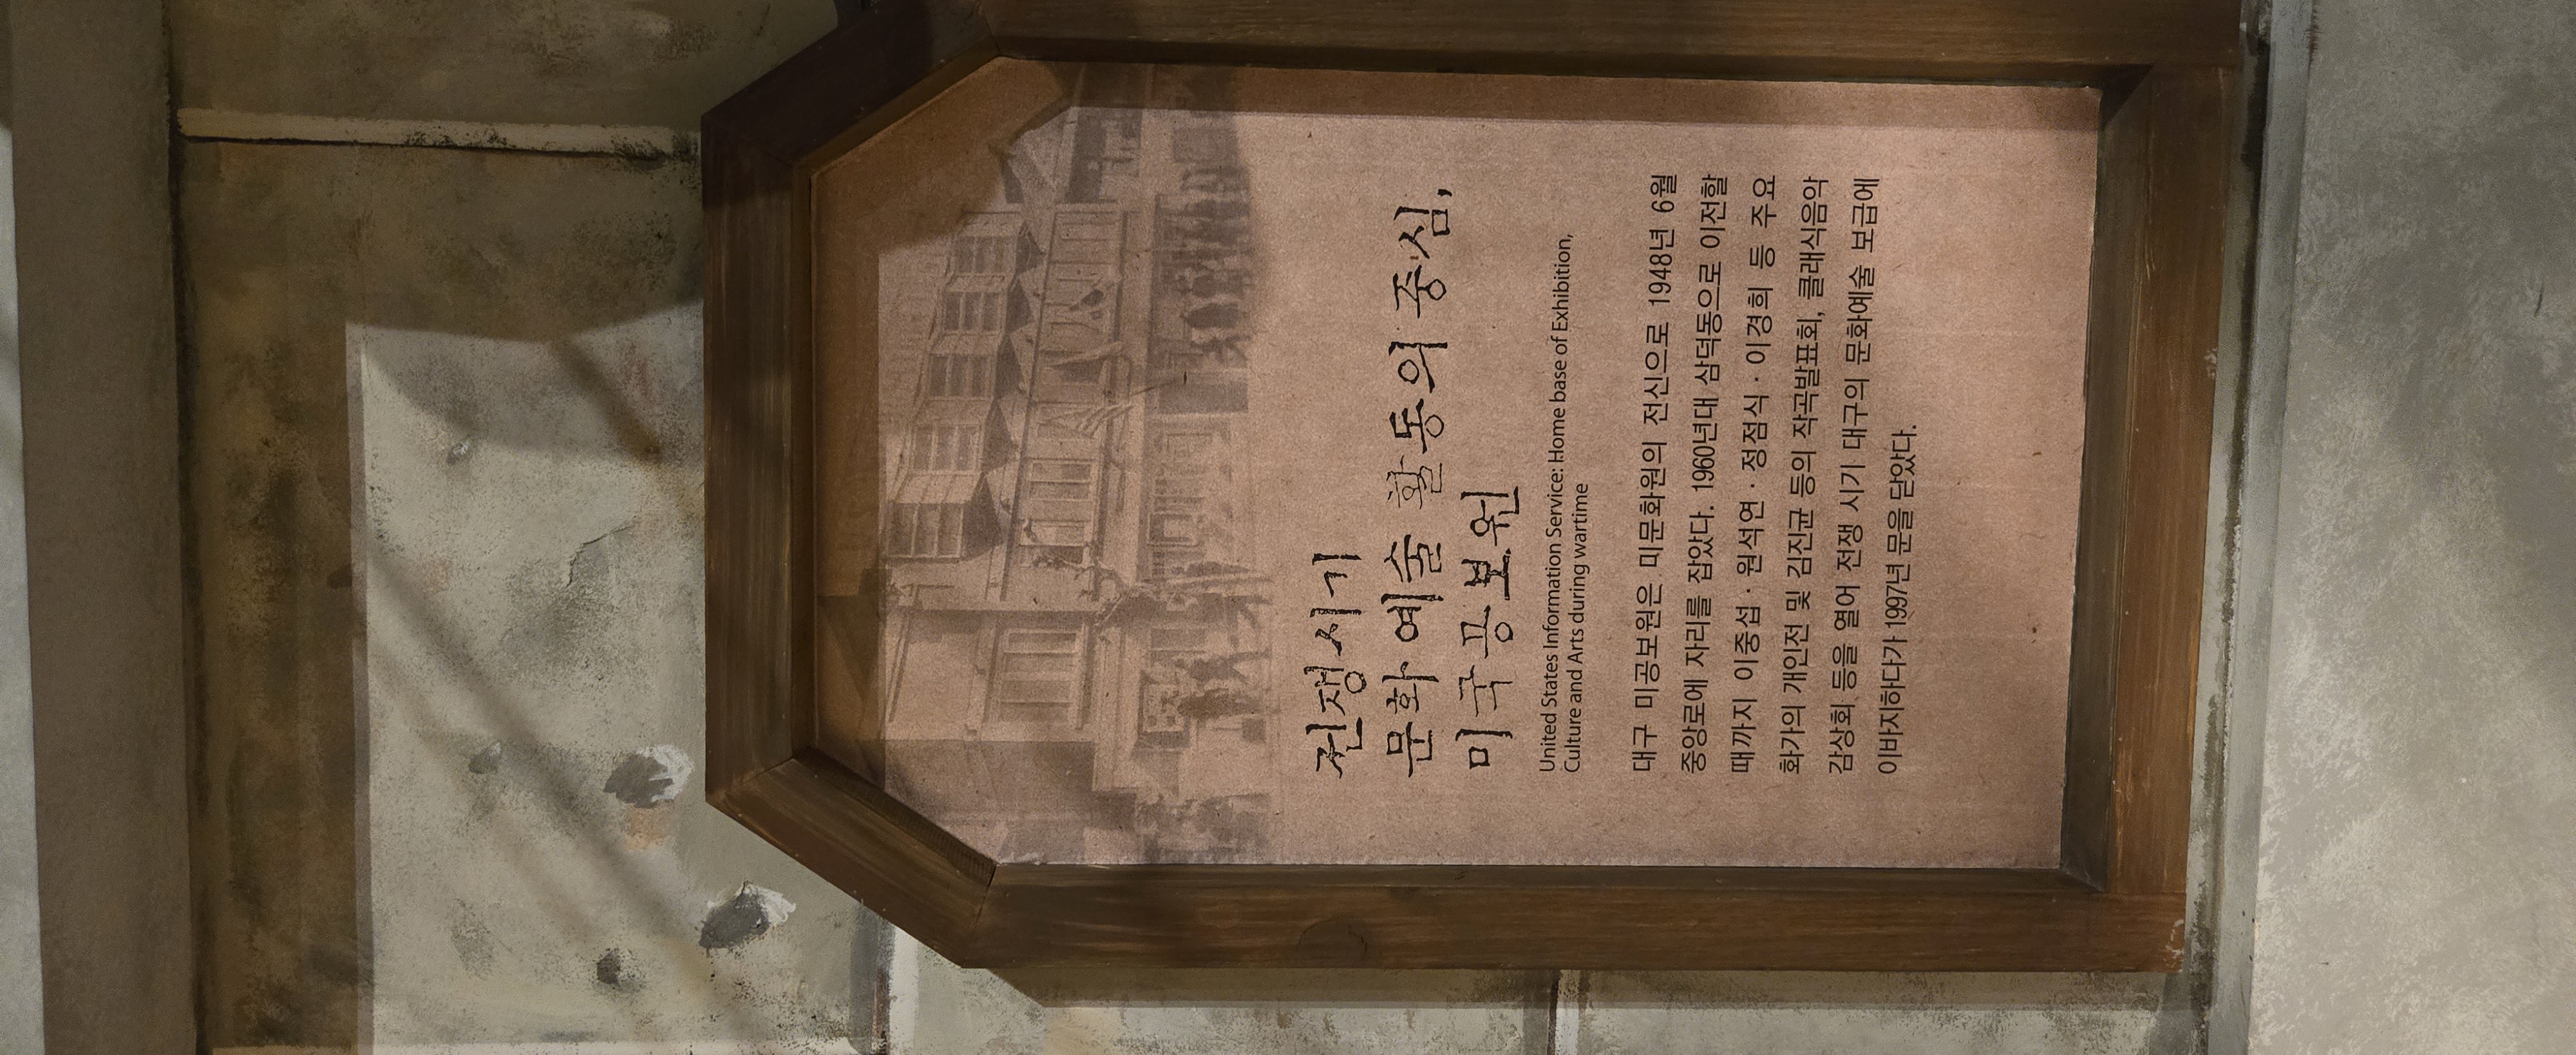 전쟁시기
문화예술 활동의 중심,
미국공보원
United States Information Service: Home base of Exhibition,
Culture and Arts during wartime
대구 미공보원은 미문화원의 전신으로 1948년 6월
중앙로에 자리를 잡았다. 1960년대 삼덕동으로 이전할
때까지 이중섭 · 원석연 · 정점식 · 이경희 등 주요
화가의 개인전 및 김진균 등의 작곡발표회, 클래식음악
감상회 등을 열어 전쟁 시기 대구의 문화예술 보급에
이바지하다가 1997년 문을 닫았다.